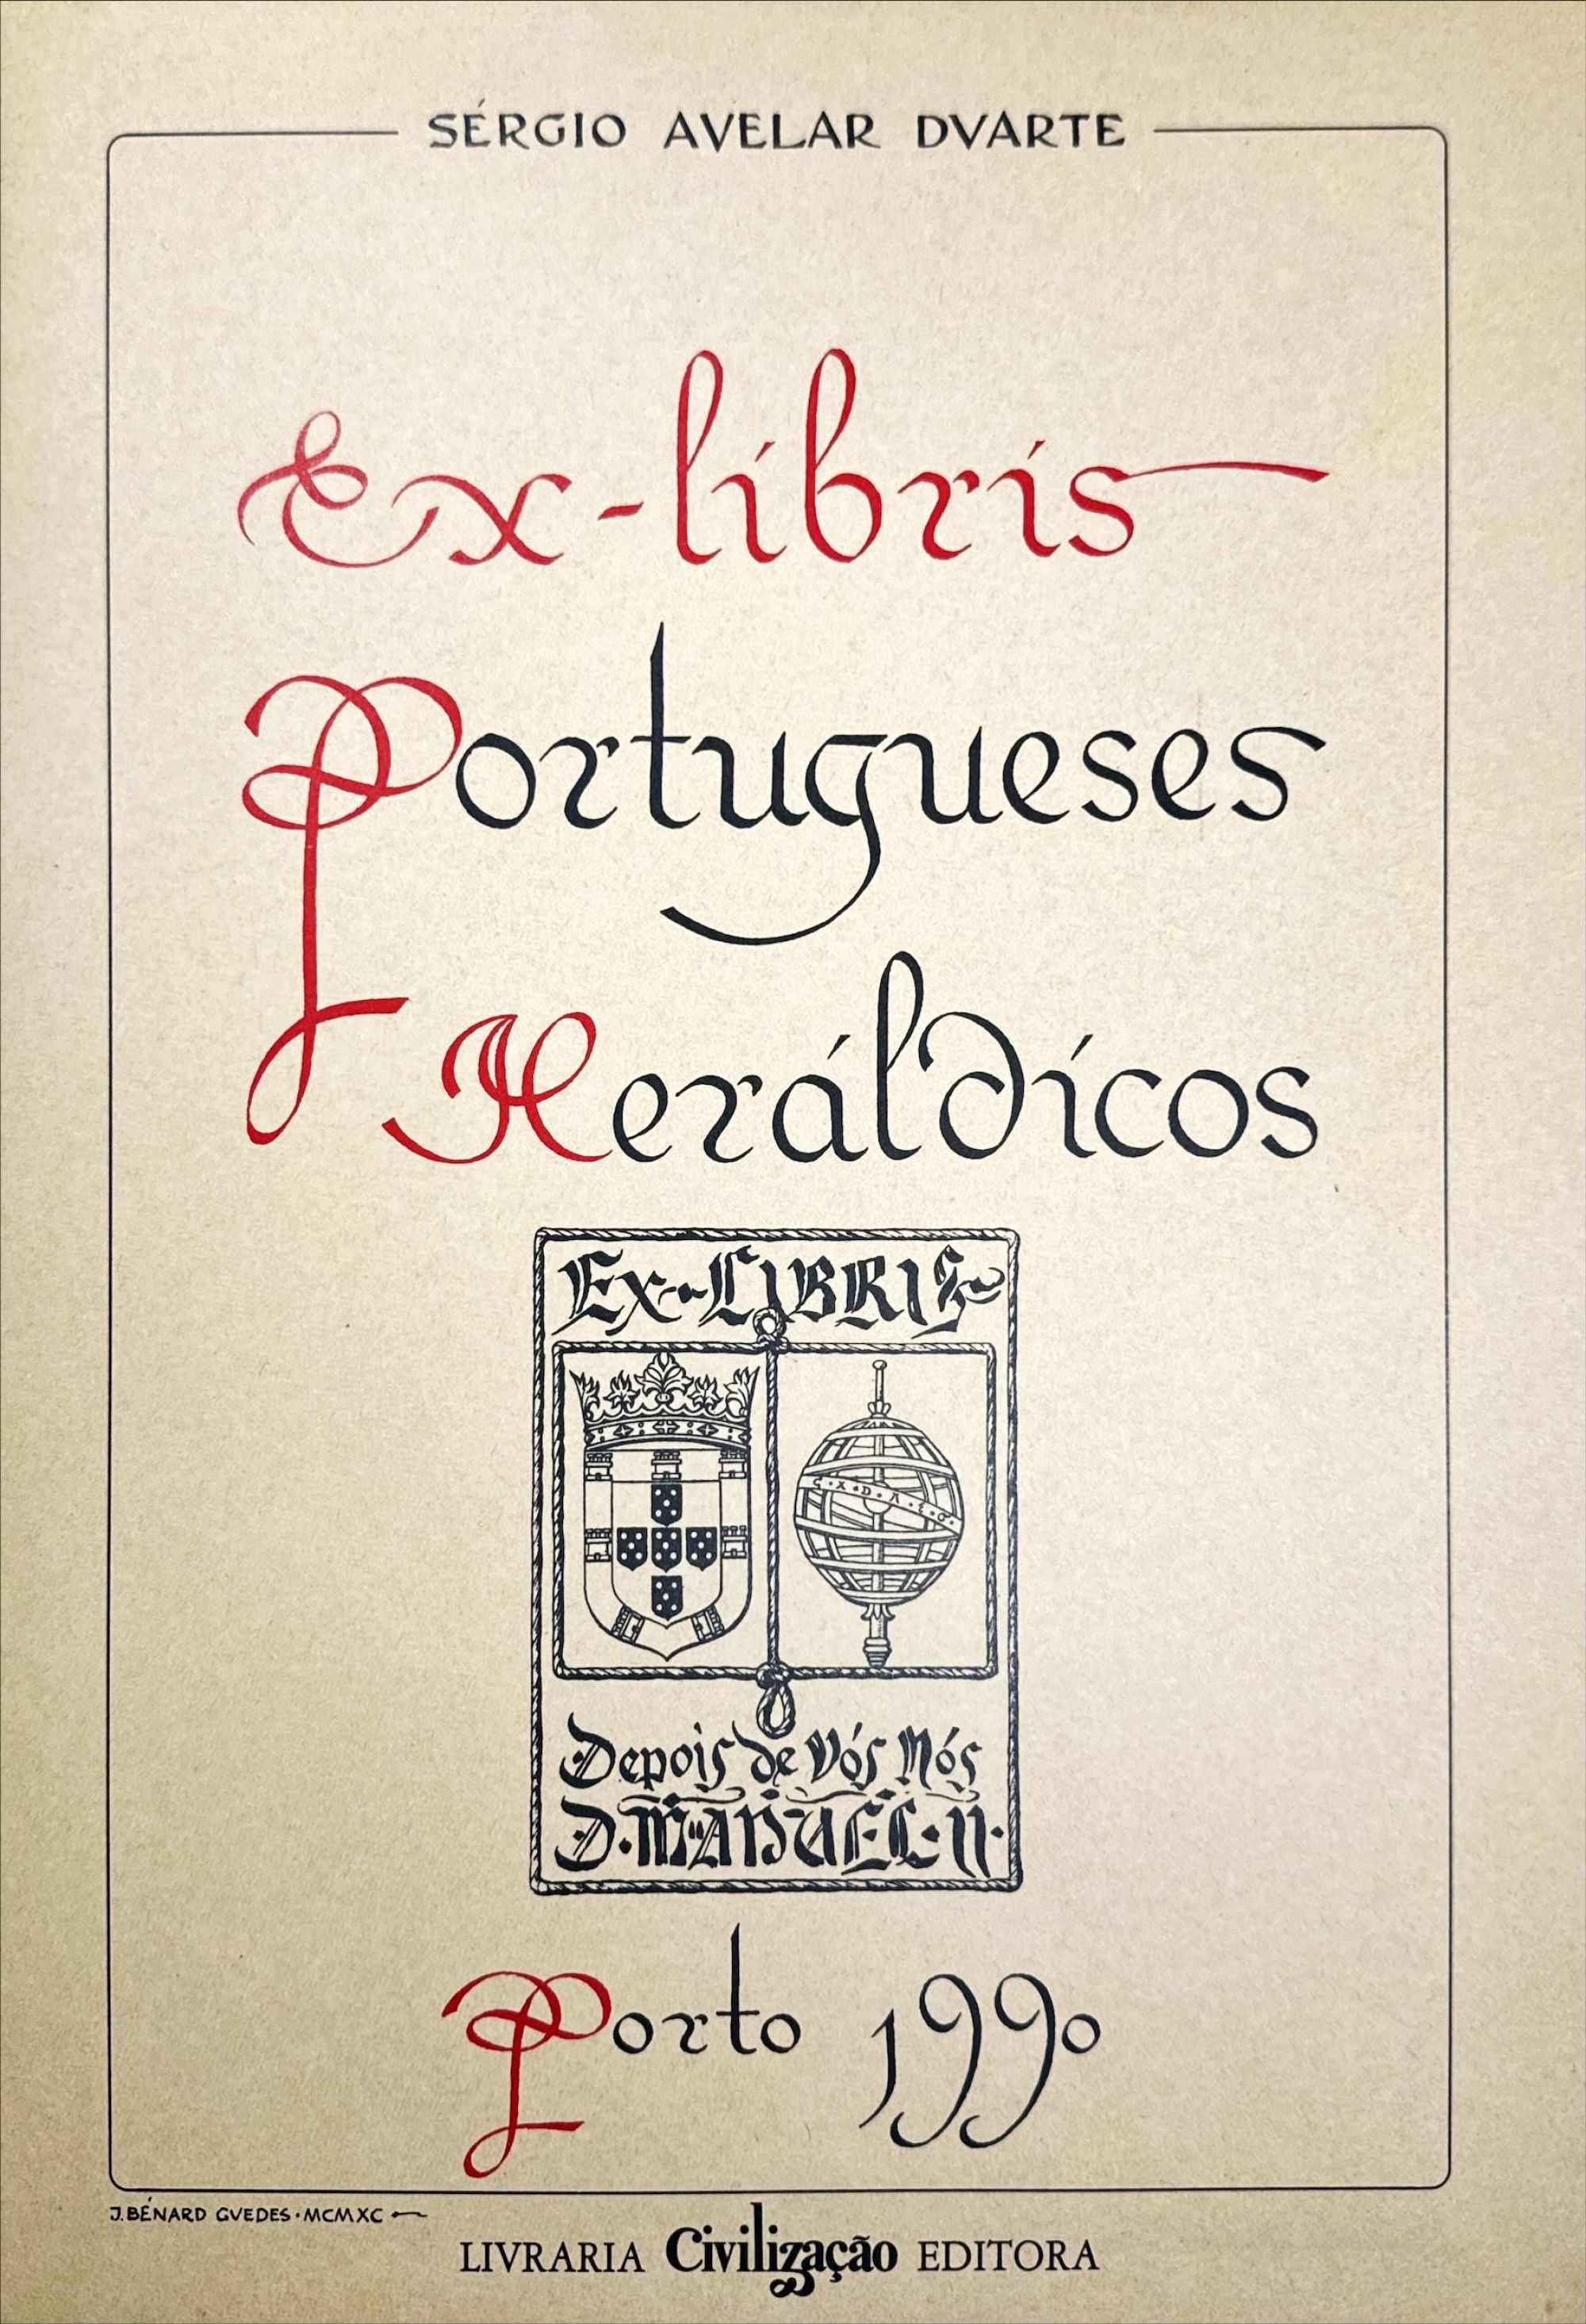 SÉRGIO AVELAR DVARTE
Ex-líbris
Portugueses
Heráldicos
EX-LIBRIS
Depois de Vós Nós
D. MANUEL. II.
Porto 1990
J. BÉNARD GVEDES · MCMXC
LIVRARIA Civilização EDITORA